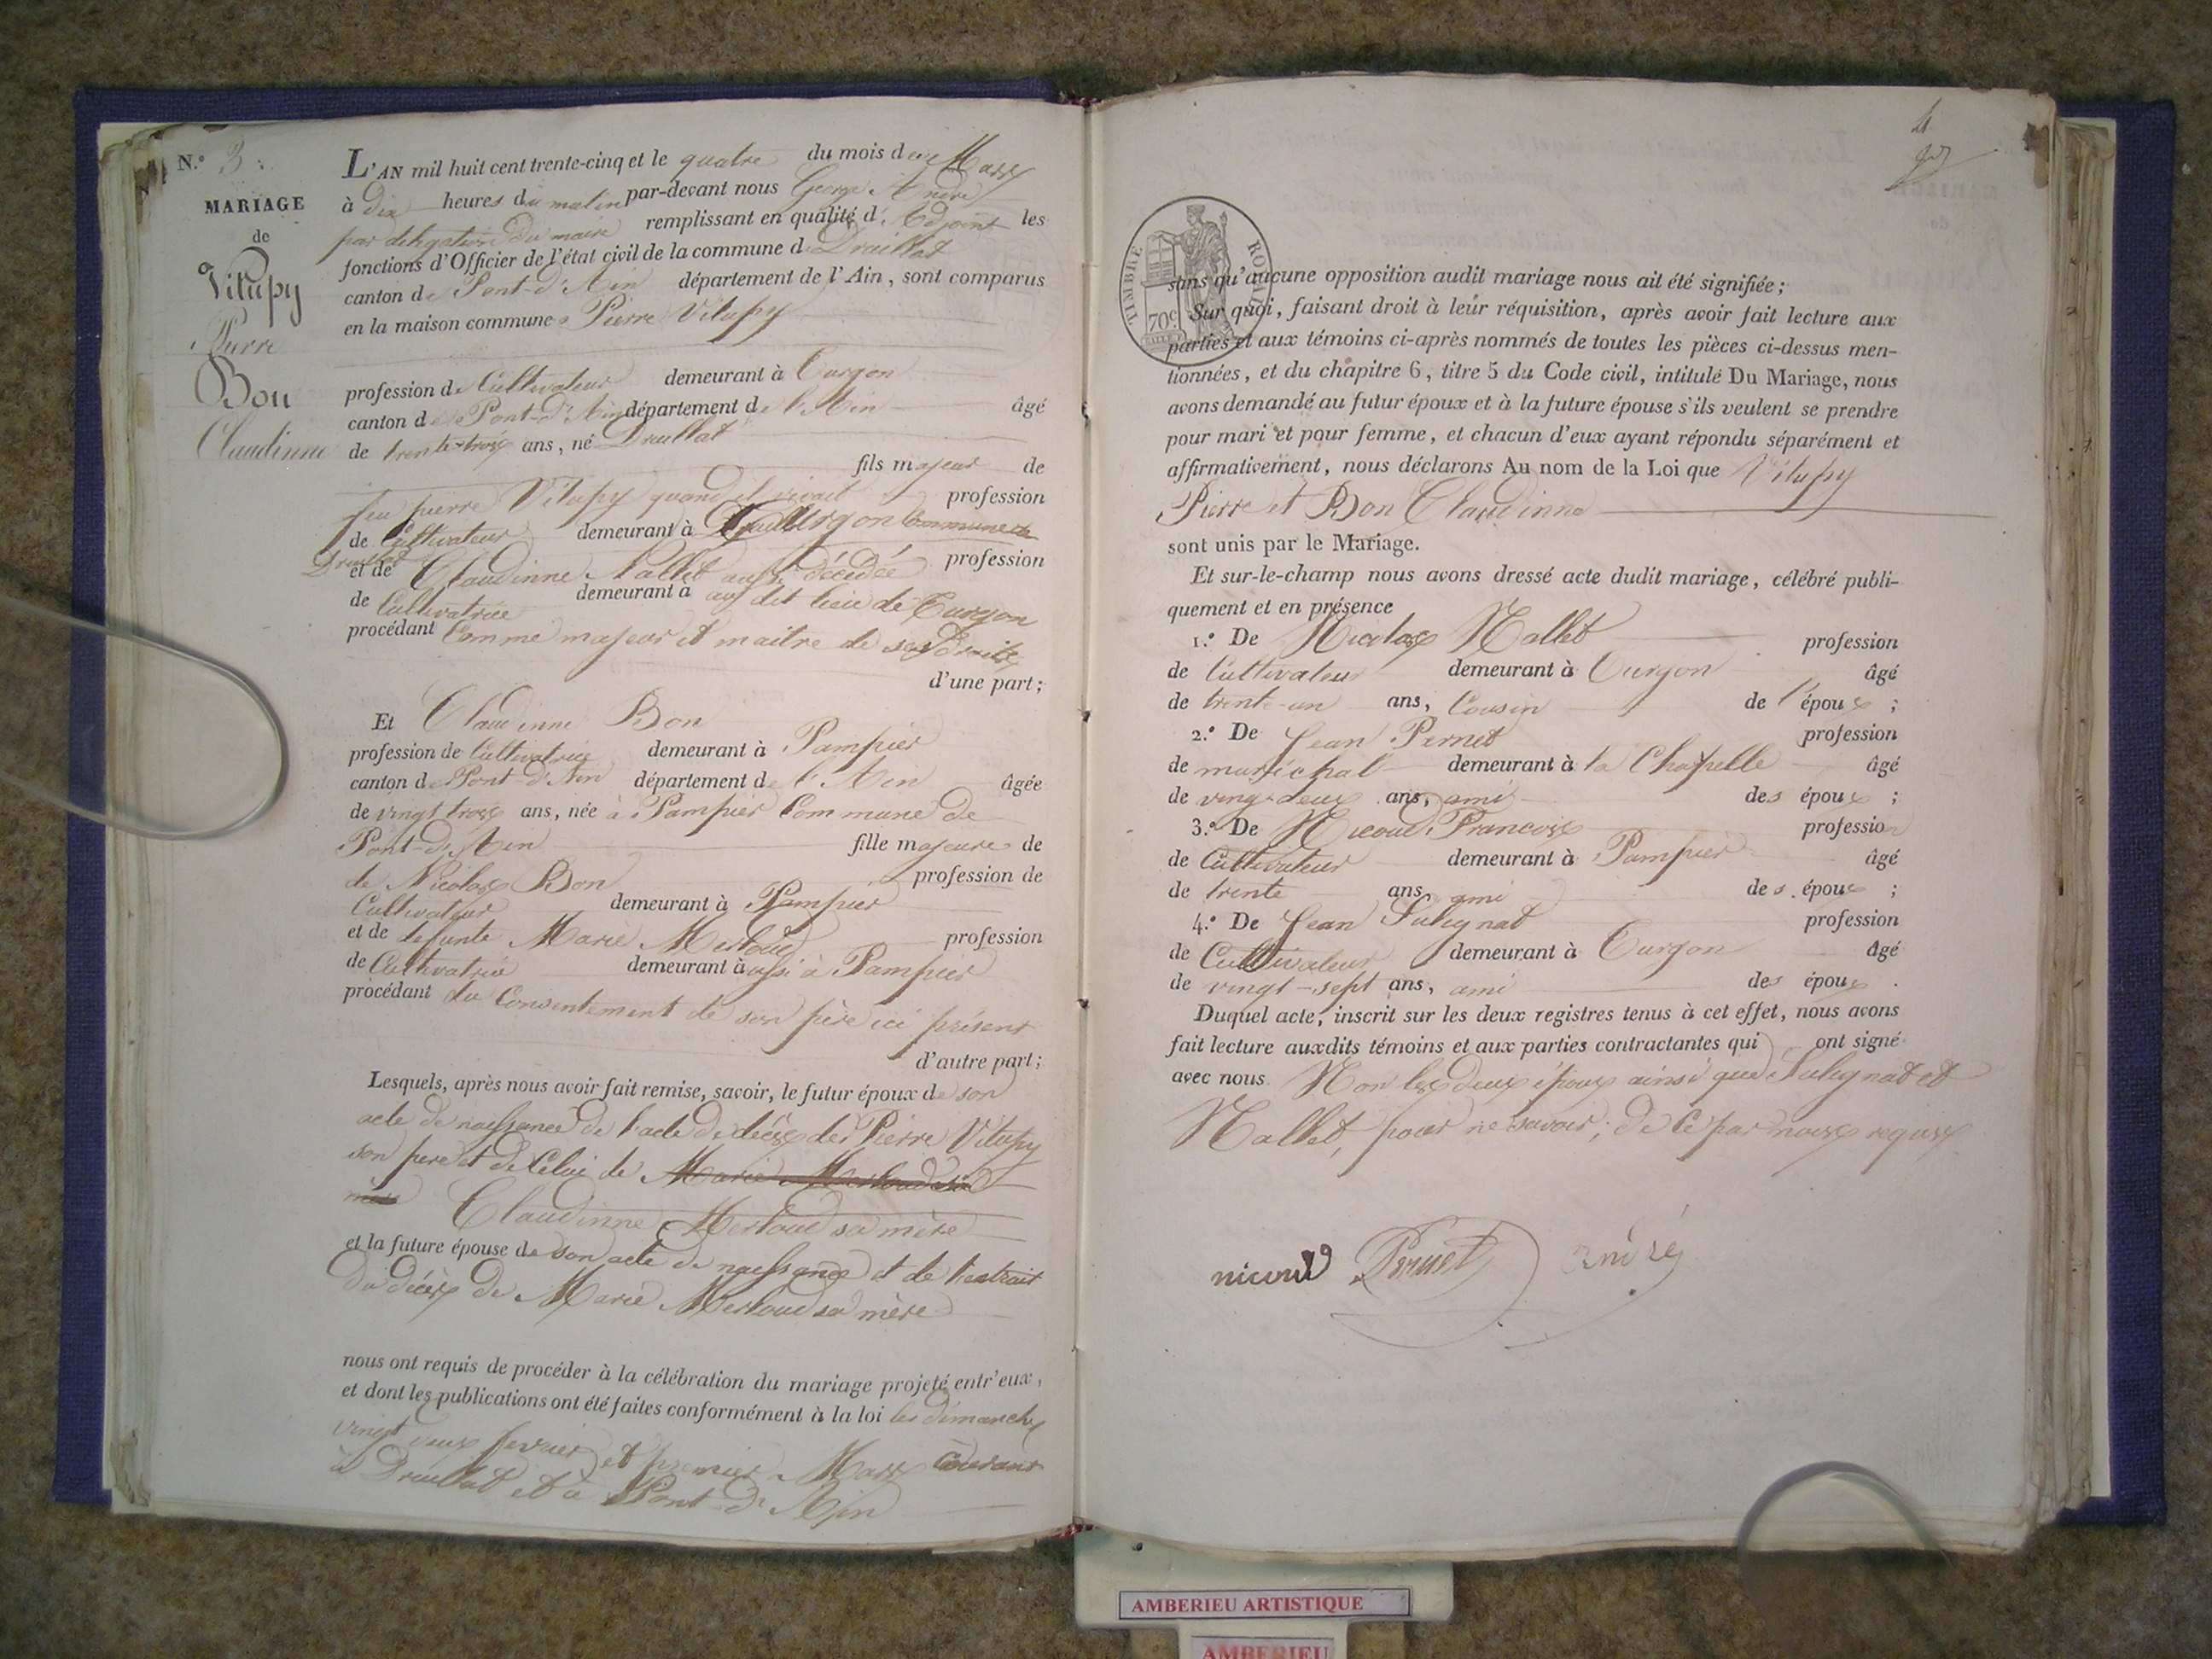 N.º 3.
MARIAGE
de
Vitupy
Pierre
Bon
Claudinne
L'AN mil huit cent trente-cinq et le quatre du mois de Mars
à dix heures du matin par-devant nous George André
par déligation du maire remplissant en qualité d'Adjoint les
fonctions d'Officier de l'état civil de la commune d Druillat
canton de Pont-d'Ain département de l'Ain, sont comparus
en la maison commune Pierre Vitupy
profession de Cultivateur demeurant à Turgon
canton de Pont-d'Ain département de l'Ain âgé
de trente-trois ans, né Druillat
fils majeur de
feu pierre Vitupy quand il vivait profession
de Cultivateur demeurant à Turgon Commune de
Druillat
et de Claudinne Nallet aussi décédée profession
de Cultivatrice demeurant à au dit lieu de Turgon
procédant Comme majeur et maitre de ses droits
d'une part;
Et Claudinne Bon
profession de Cultivatrice demeurant à Pampier
canton de Pont-d'Ain département de l'Ain âgée
de vingt trois ans, née à Pampier Commune de
Pont-d'Ain fille majeure de
de Nicolas Bon profession de
Cultivateur demeurant à Pampier
et de défunte Marie Merloud profession
de Cultivatrice demeurant à aussi à Pampier
procédant du Consentement de son père ici présent
d'autre part;
Lesquels, après nous avoir fait remise, savoir, le futur époux de son
acte de naissance de l'acte de décès de Pierre Vitupy
son pere et de Celui de Marie Merloud sa
mère Claudinne Merloud sa mère
et la future épouse de son acte de naissance et de l'extrait
du décès de Marie Merloud sa mère
nous ont requis de procéder à la célébration du mariage projeté entr'eux,
et dont les publications ont été faites conformément à la loi les dimanches
vingt deux fevrier et premier Mars Courant
à Druillat et à Pont-d'Ain
4
TIMBRE ROYAL
70c
sans qu'aucune opposition audit mariage nous ait été signifiée;
Sur quoi, faisant droit à leur réquisition, après avoir fait lecture aux
parties et aux témoins ci-après nommés de toutes les pièces ci-dessus men-
tionnées, et du chapitre 6, titre 5 du Code civil, intitulé Du Mariage, nous
avons demandé au futur époux et à la future épouse s'ils veulent se prendre
pour mari et pour femme, et chacun d'eux ayant répondu séparément et
affirmativement, nous déclarons Au nom de la Loi que Vitupy
Pierre et Bon Claudinne
sont unis par le Mariage.
Et sur-le-champ nous avons dressé acte dudit mariage, célébré publi-
quement et en présence
1.º De Nicolas Nallet profession
de Cultivateur demeurant à Turgon âgé
de trente-un ans, Cousin de l'époux ;
2.º De Jean Pernet profession
de maréchal demeurant à la Chapelle âgé
de ving-deux ans, ami des époux ;
3.º De Nicoud Francois profession
de Cultivateur demeurant à Pampier âgé
de trente ans, ami des époux ;
4.º De Jean Suhgnat profession
de Cultivateur demeurant à Turgon âgé
de vingt-sept ans, ami des époux .
Duquel acte, inscrit sur les deux registres tenus à cet effet, nous avons
fait lecture auxdits témoins et aux parties contractantes qui ont signé
avec nous Non les deux époux ainsi que Suhgnat et
Nallet, pour ne savoir, de Ce par nous requis
nicoud Pernet andré
AMBERIEU ARTISTIQUE
AMBERIEU